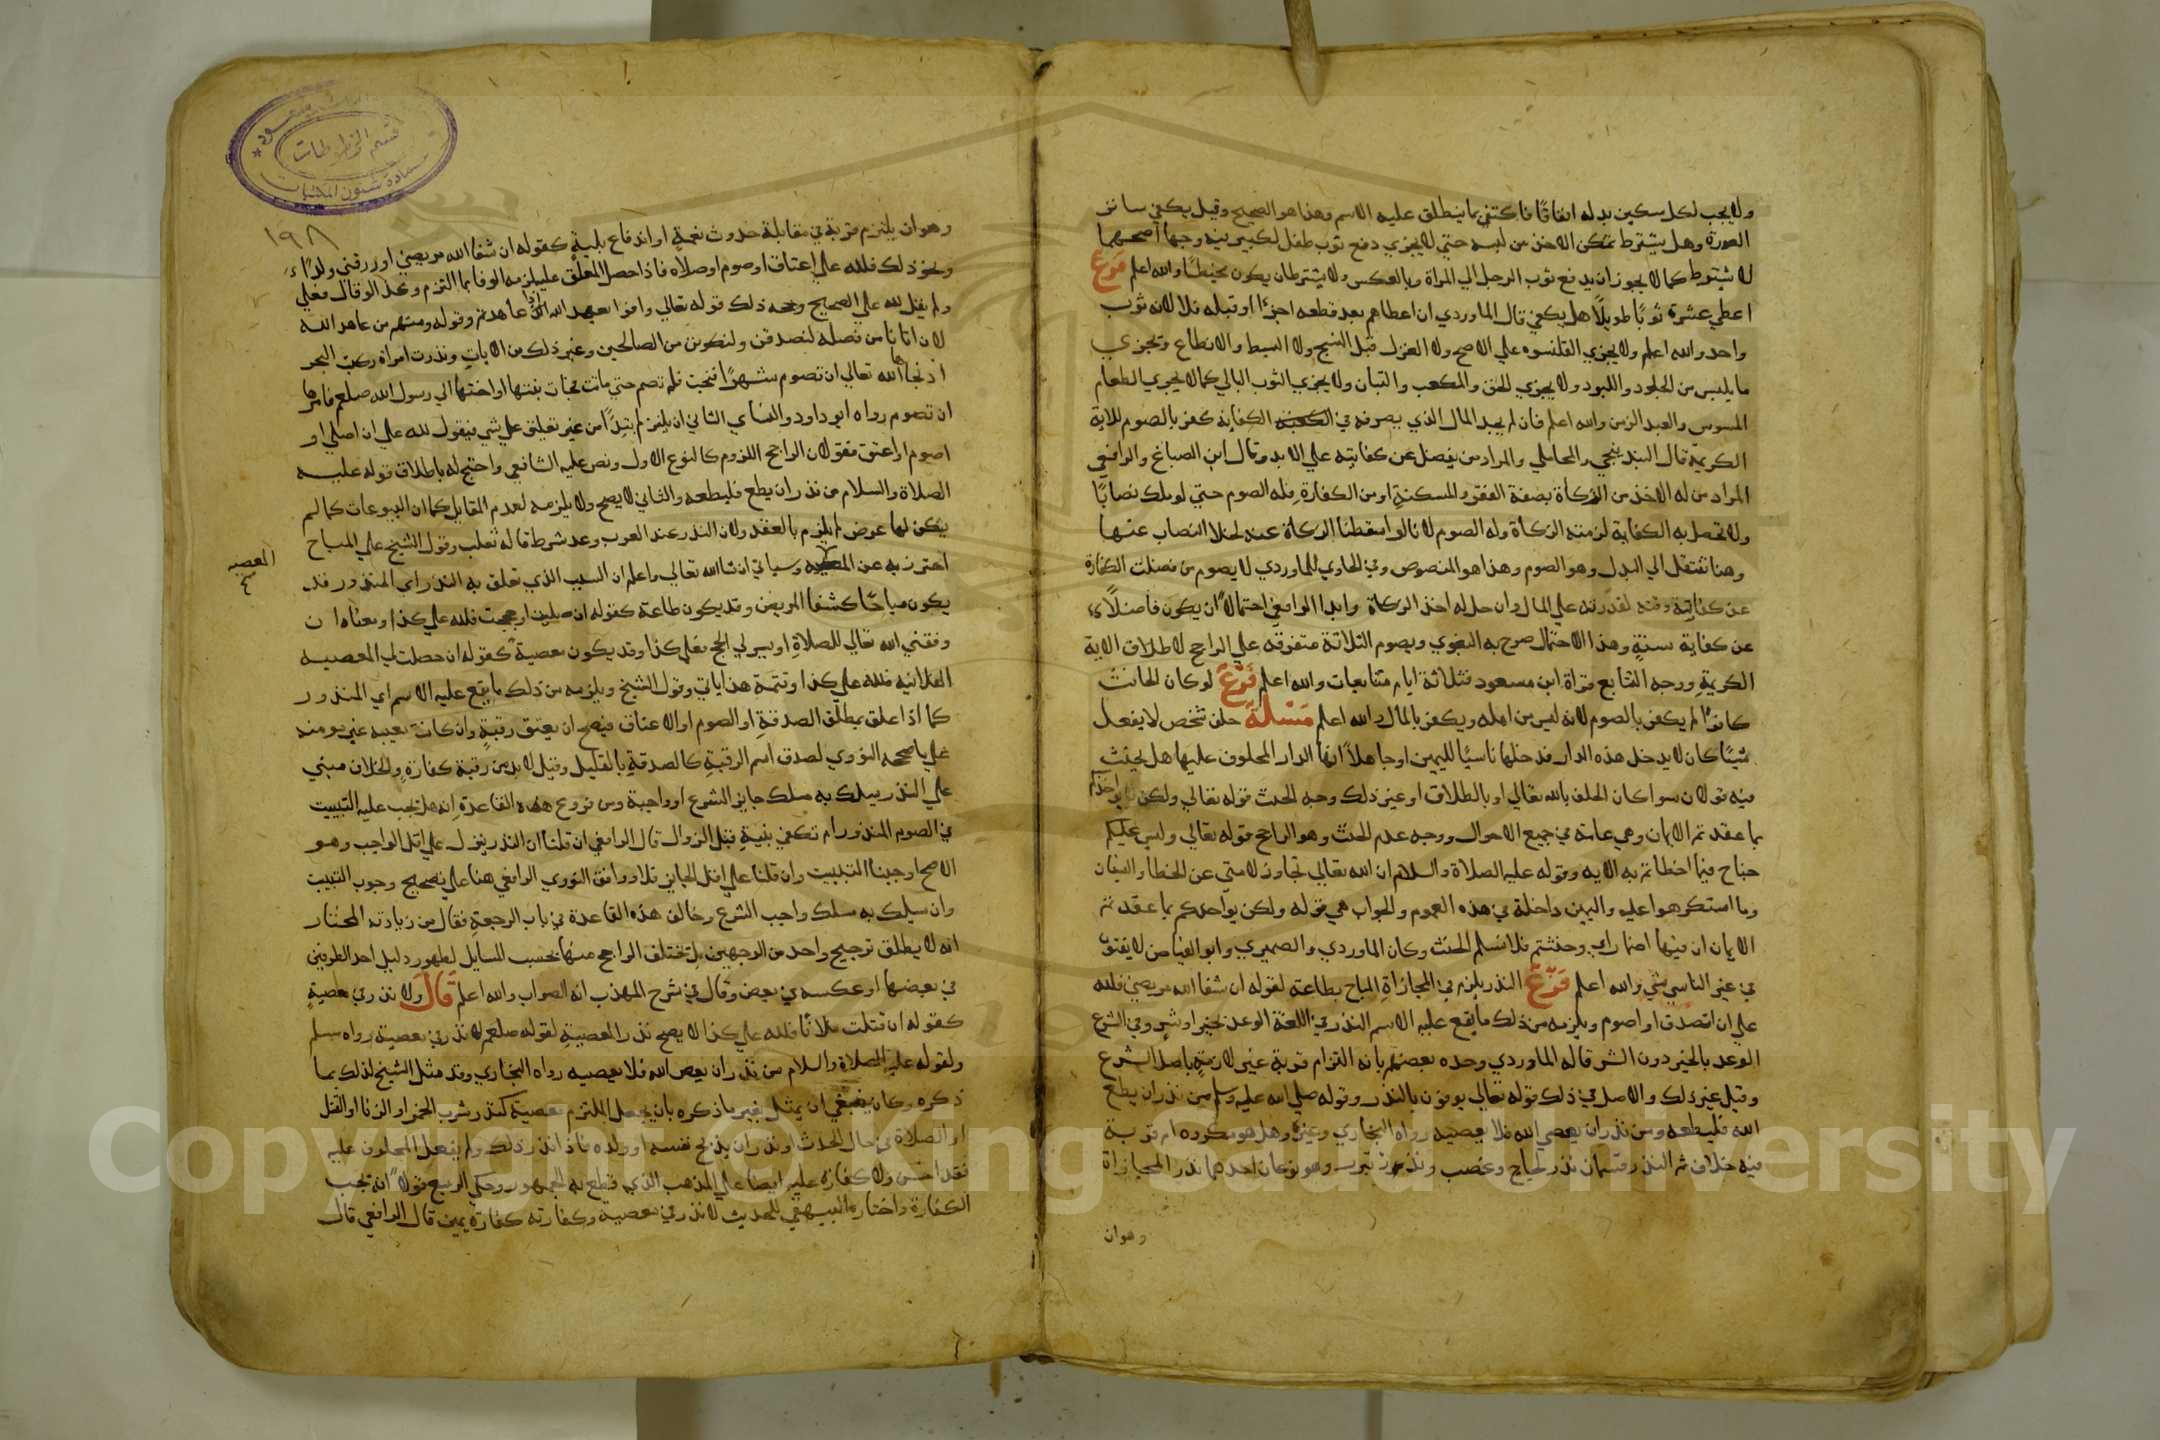 ولا يجب لكل مسكين بدله اتفاقا فاكتفى بما ينطلق عليه الاسم وهذا هو الصحيح وقيل يكفي ساتر
العورة وهل يشترط تمكن الاخذ من لبسه حتي لا يجزي دفع ثوب طفل لكبير فيه وجهان اصحهما
لا يشترط كما لا يجوز ان يدفع ثوب الرجل الي المراة وبالعكس ولا يشترط ان يكون مخيطا والله اعلم فرع
اعطي عشرة ثوبًا طويلًا هل يكفي قال الماوردي ان اعطاهم بعد قطعه اجزءا او قبله فلا لانه ثوب
واحد والله اعلم ولا يجزي القلنسوه علي الاصح ولا الغزل قبل النسج ولا البسط والانطاع وتجزي
ما يلبس من الجلود واللبود ولا يجزي الخف والمكعب والتبان ولا يجزي الثوب البالي كما لا يجزي الطعام
المسوس والعبد الزمن والله اعلم فان لم يجد المال الذي يصرفه في الكفارة كفر بالصوم للاية
الكريمة قال البندنيجي والمحاملي والمراد من يفضل عن كفايته علي الابد وقال ابن الصباغ والرافعي
المراد من له الاخذ من الزكاة بصفة الفقر والمسكنة او من الكفارة فله الصوم حتي لو ملك نصابًا
ولا تحصل به الكفاية لزمته الزكاة وله الصوم لانا لو اسقطنا الزكاة عنه لخلا النصاب عنها
وهنا ننتقل الي البدل وهو الصوم وهذا هو المنصوص وفي الحاوي للماوردي لا يصوم من فضلت الكفارة
عن كفايته وقته لقدرته علي المال وان حل له اخذ الزكاة وابدا الرافعي احتمالًا ان يكون فاضلًا
عن كفاية سنةٍ وهذا الاحتمال صرح به البغوي ويصوم الثلاثة متفرقه علي الراجح لاطلاق الاية
الكريمة ووجه التتابع قراة ابن مسعود فثلاثة ايام متتابعات والله اعلم فرع لو كان الحانث
كافرًا لم يكفر بالصوم لانه ليس من اهله ويكفر بالمال والله اعلم مسئلة حلف شخص لا يفعل
شيئًا كان لا يدخل هذه الدار فدخلها ناسيًا لليمين او جاهلًا انها الدار المحلوف عليها هل يحنث
فيه قولان سوا كان الحلف بالله تعالي او بالطلاق او غير ذلك وجه الحنث قوله تعالي ولكن يواخذكم
بما عقدتم الايمان وهي عامة في جميع الاحوال ووجه عدم الحنث وهو الراجح قوله تعالي وليس عليكم
جناح فيما اخطاتم به الايه وقوله عليه الصلاة والسلام ان الله تعالي تجاوز لامتي عن الخطا والنسيان
وما استكرهوا عليه واليمين داخلة في هذه العموم والجواب هي قوله ولكن يواخذكم بما عقدتم
الايمان ان فيها اضمار اي وحنثتم فلا نسلم الحنث وكان الماوردي والصيمري وابو الفياض لا يفتون
في غير الناسي بشي والله اعلم فرع النذر يلزم في المجازاة المباح بطاعته لقوله ان شفا الله مريضي فلله
علي ان اتصدق او اصوم ويلزمه من ذلك ما يقع عليه الاسم النذر في اللغة الوعد بخير او شر وفي الشرع
الوعد بالخير دون الشر قاله الماوردي وحده بعضهم بانه التزام قربة غير لازمة باصل الشرع
وقيل غير ذلك والاصل في ذلك قوله تعالي يوفون بالنذر وقوله صلي الله عليه وسلم من نذر ان يطع
الله فليطعه ومن نذر ان يعصي الله فلا يعصيه رواه البخاري وغيره وهل هو مكروه ام قربة
فيه خلاف ثم النذر قسمان نذر لجاج وغضب ونذر تبرر وهو نوعان احدهما نذر المجازاة
وهوان
١٩٨
وهوان يلتزم قربة في مقابلة حدوث نعمةٍ او اندفاع بليةٍ كقوله ان شفا الله مريضي او رزقني ولدًا
ونحو ذلك فلله علي اعتاق او صوم او صلاه فاذا حصل المعلق عليه لزمه الوفا بما التزم وكذا لو قال فعلي
ولم يقل لله علي الصحيح وحجه ذلك قوله تعالي واوفوا بعهد الله اذا عاهدتم وقوله ومنهم من عاهد الله
لان اتانا من فضله لنصدقن ولنكونن من الصالحين وغير ذلك من الايات ونذرت امراة ركبت البحر
ان نجاها الله تعالي ان تصوم شهرًا فنجت فلم تصم حتي ماتت فجات بنتها او اختها الي رسول الله صلعم فامرها
ان تصوم رواه ابو داود والنساي الثاني ان يلتزم ابتداً من غير تعليق علي شي فيقول لله علي ان اصلي او
اصوم او اعتق فقولان الراجح اللزوم كالنوع الاول ونص عليه الشافعي واحتج له باطلاق قوله عليه
الصلاة والسلام من نذر ان يطع فليطعه والثاني لا يصح ولا يلزمه لعدم المقابل كما ان البيوعات كما لم
يكن لها عوض لم يلزم بالعقد ولان النذر عند العرب وعد شرط قاله ثعلب وقول الشيخ علي المباح
احترز به عن وسياتي ان شا الله تعالي واعلم ان السبب الذي تعلق به النذر اي المنذور قد
المعصيه
يكون مباحًا كشفا المريض وقد يكون طاعة كقوله ان صليت او حججت فلله علي كذا ومعناه ان
وفقني الله تعالي للصلاة او يسر لي الحج فعلي كذا وقد يكون معصية كقوله ان حصلت لي المعصيه
الفلانيه فلله علي كذا وتتمة هذا ياتي وقول الشيخ ويلزمه من ذلك ما يقع عليه الاسم اي المنذور
كما اذا علق بمطلق الصدقةِ او الصوم او الاعتاق فيصح ان يعتق رقبةٍ وان كانت معيبه غير مومنه
علي ما صححه النووي لصدق اسم الرقبةِ كالصدقةِ بالقليل وقيل لا بد من رقبة كفارةٍ والخلاف مبني
علي النذر يسلك به مسلك جايز الشرع او واجبة ومن فروع هذه القاعدة انه هل يجب عليه التبييت
في الصوم المنذور ام تكفي بنية قبل الزوال قال الرافعي ان قلنا ان النذر ينزل علي اقل الواجب وهو
الاصح اوجبنا التبييت وان قلنا علي اقل الجايز فلا ووافق النووي الرافعي هنا علي تصحيح وجوب التبييت
وان سلك به مسلك واجب الشرع وخالف هذه القاعدة في باب الرجعة فقال من زيادته المختار
انه لا يطلق ترجيح واحد من الوجهين بل تختلف الراجح منها بحسب المسايل لظهور دليل احد الطرفين
في بعضها او عكسه في بعض وقال في شرح المهذب انه الصواب والله اعلم قال ولا نذر في معصيةٍ
كقوله ان قتلت فلانًا فلله علي كذا لا يصح نذر المعصيةِ لقوله صلعم لا نذر في معصية رواه مسلم
ولقوله عليه الصلاة والسلام من نذر ان يعص الله فلا يعصيه رواه البخاري وقد مثل الشيخ لذلك بما
ذكره وكان ينبغي ان يمثل بغير ما ذكره بان يجعل الملتزم معصية كنذر شرب الخمر او الزنا او القتل
او الصلاة في حال الحدث او نذر ان يذبح نفسه او ولده فاذا نذر ذلك ولم يفعل المحلوف عليه
فقد احسن ولا كفارة عليه ايضا علي المذهب الذي قطع به الجمهور وحكي الربيع قولًا انه تجب
الكفارة واختاره البيهقي للحديث لا نذر في معصية وكفارته كفارة يمين قال الرافعي قال
قسم المخطوطات
عمادة شئون المكتبات
Copyright © King Saud University